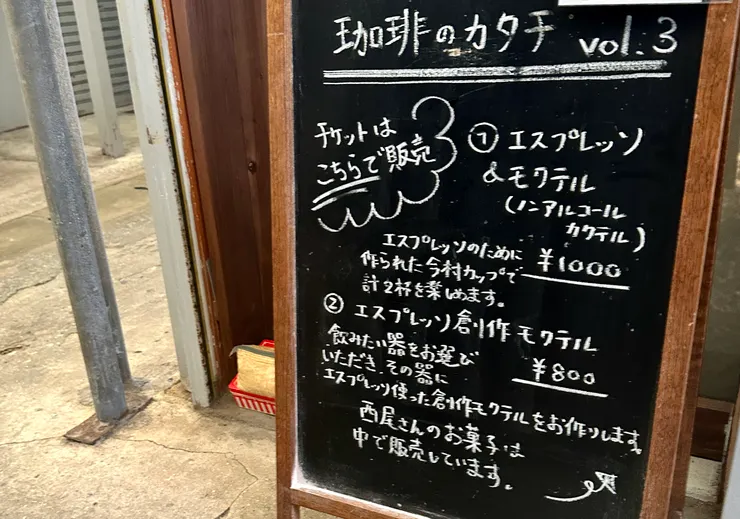 珈琲のカタチ vol.3
チケットは
こちらで販売
① エスプレッソ
&モクテル
(ノンアルコール
カクテル)
¥1000
エスプレッソのために
作られた今村カップで
計2杯を楽しめます。
② エスプレッソ創作モクテル
¥800
飲みたい器をお選び
いただき、その器に
エスプレッソ使った創作モクテルをお作りします。
西尾さんのお菓子は
中で販売しています。